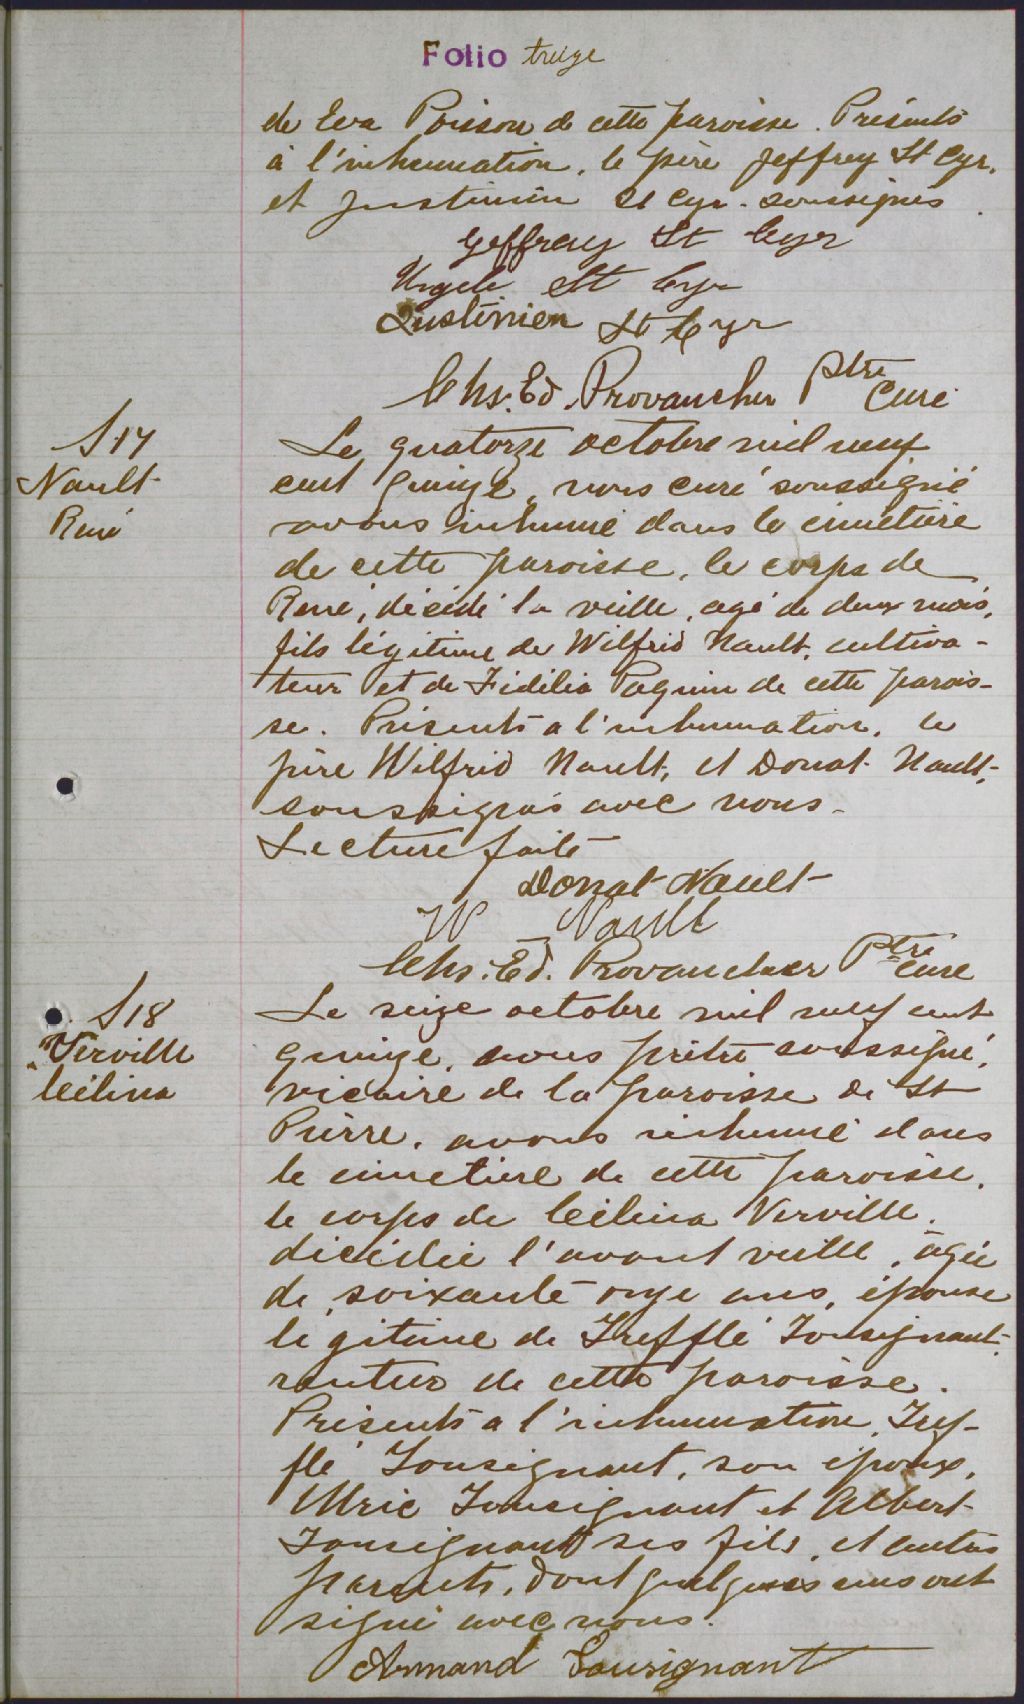 Folio treize
de Eva Poisson de cette paroisse. Présents
à l'inhumation, le père Jeffrey St Cyr,
et Justinien St Cyr. soussignés.
Geffrey St Cyr
Urgele St Cyr
Justinien St Cyr
Chs. Ed. Provancher Ptre Curé
S17
Nault
René
Le quatorze octobre mil neuf
cent quinze, nous curé soussigné
avons inhumé dans le cimetière
de cette paroisse, le corps de
René, décédé la veille, agé de deux mois,
fils légitime de Wilfrid Nault, cultiva-
teur et de Fidélia Paquin de cette parois-
se. Présents à l'inhumation, le
père Wilfrid Nault, et Donat Nault,
soussignés avec nous.
Lecture faite
Donat Nault
W Nault
Chs. Ed. Provancher Ptre curé
S18
Verville
Célina
Le seize octobre mil neuf cent
quinze, nous prêtre soussigné,
vicaire de la paroisse de St
Pierre, avons inhumé dans
le cimetière de cette paroisse,
le corps de Célina Verville,
décédée l'avant veille, âgée
de soixante onze ans, épouse
légitime de Trefflé Tousignant,
rentier de cette paroisse.
Présents à l'inhumation, Tref-
flé Tousignant, son époux,
Ulric Tousignant et Albert
Tousignant ses fils, et autres
parents, dont quelques uns ont
signé avec nous.
Armand Tousignant